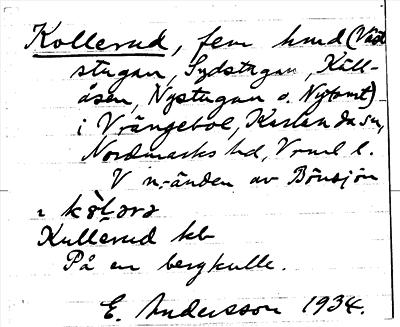 Kollerud, fem hmd (Väst
stugan, Sydstugan, Käll-
åsen, Nystugan o. Nytomt)
i Vrängebol, Karlanda sn,
Nordmarks hd, Vrml l.
V n.änden av Bönsjön
Kullerud kb
På en bergkulle.
E. Andersson 1934.